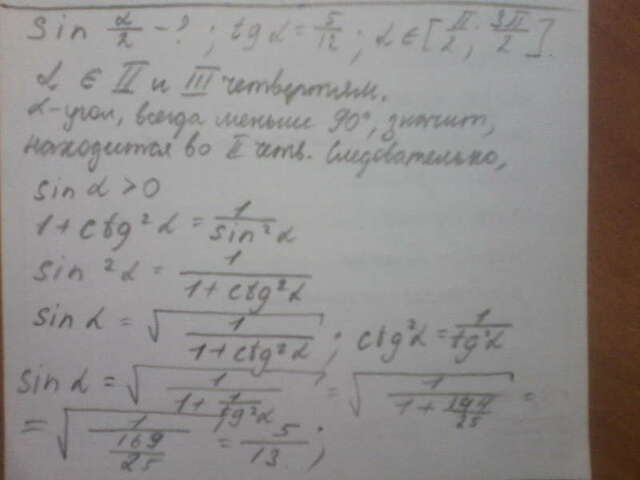 sin α/2 - ? ; tg α = 5/12 ; α ∈ [π/2 ; 3π/2].
α ∈ II и III четвертям.
α-угол, всегда меньше 90°, значит,
находится во II четв. Следовательно,
sin α > 0
1 + ctg²α = 1/sin²α
sin²α = 1/(1 + ctg²α)
sin α = √(1/(1 + ctg²α)) ; ctg²α = 1/tg²α
sin α = √(1/(1 + 1/tg²α)) = √(1/(1 + 144/25)) =
= √(1/(169/25)) = 5/13 ;